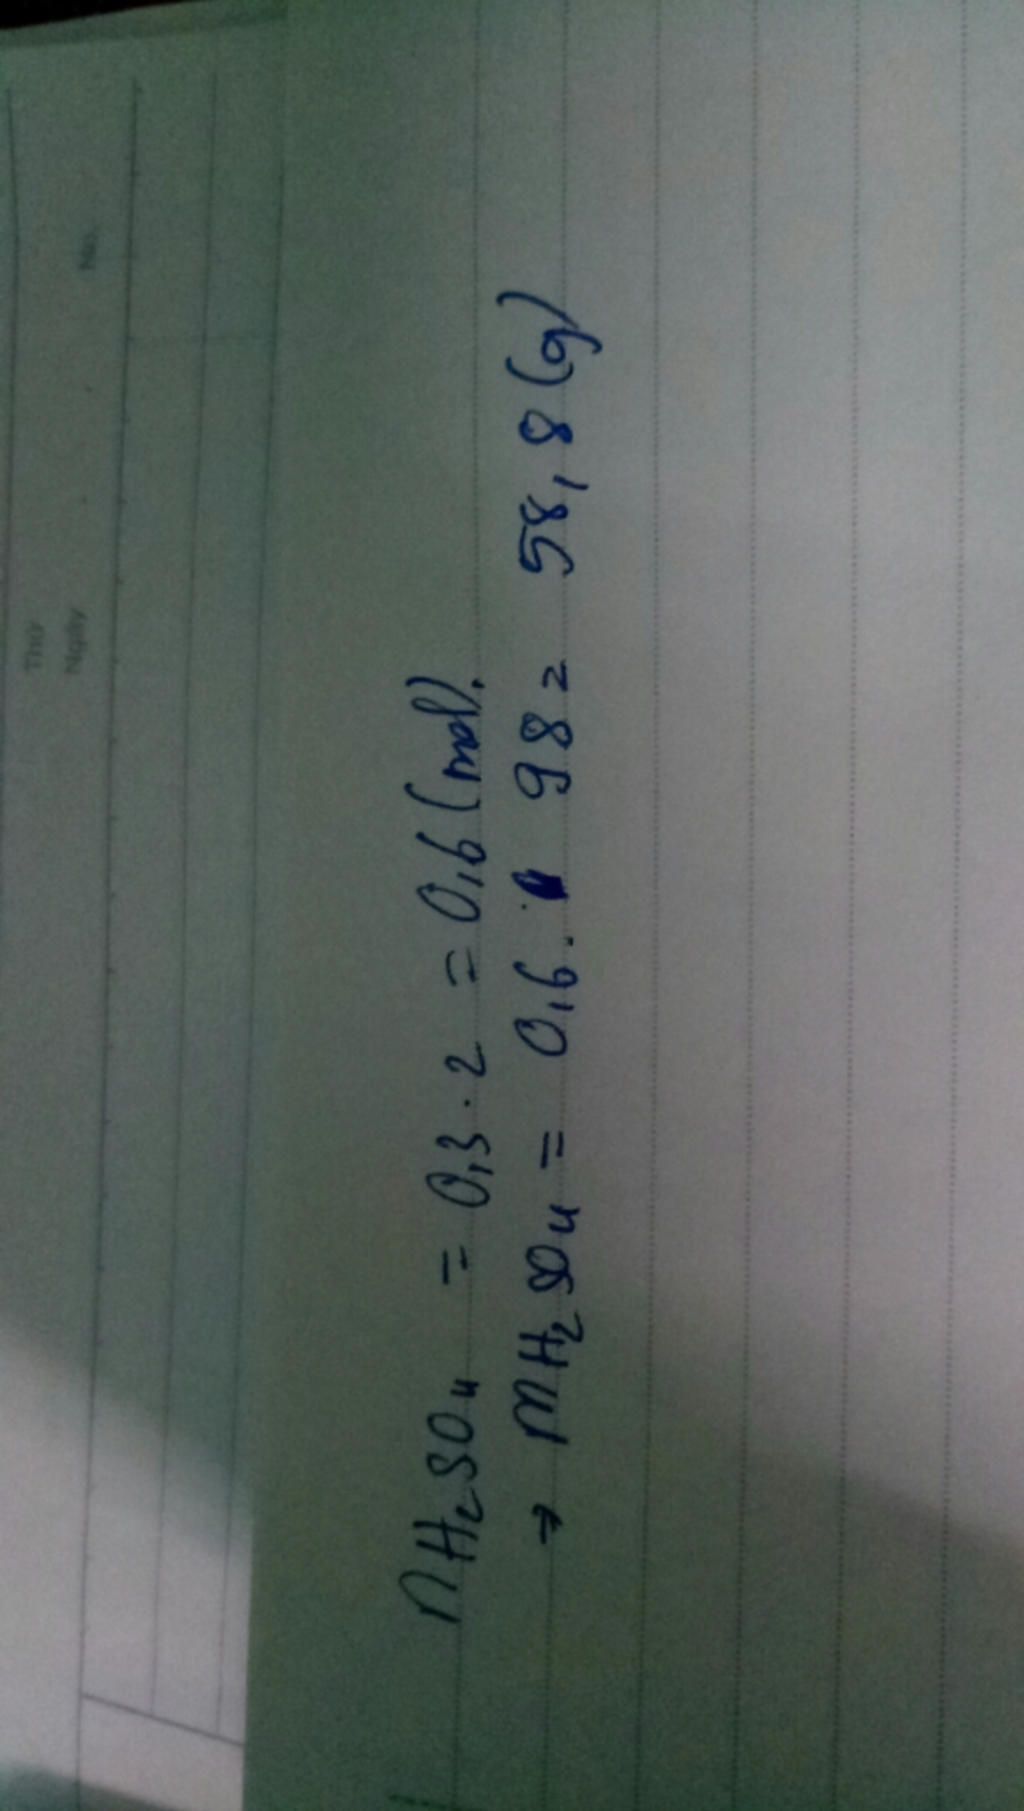 Thứ
Ngày
No.
nH2SO4 = 0,3 . 2 = 0,6 (mol).
→ mH2SO4 = 0,6 . 98 = 58,8 (g)